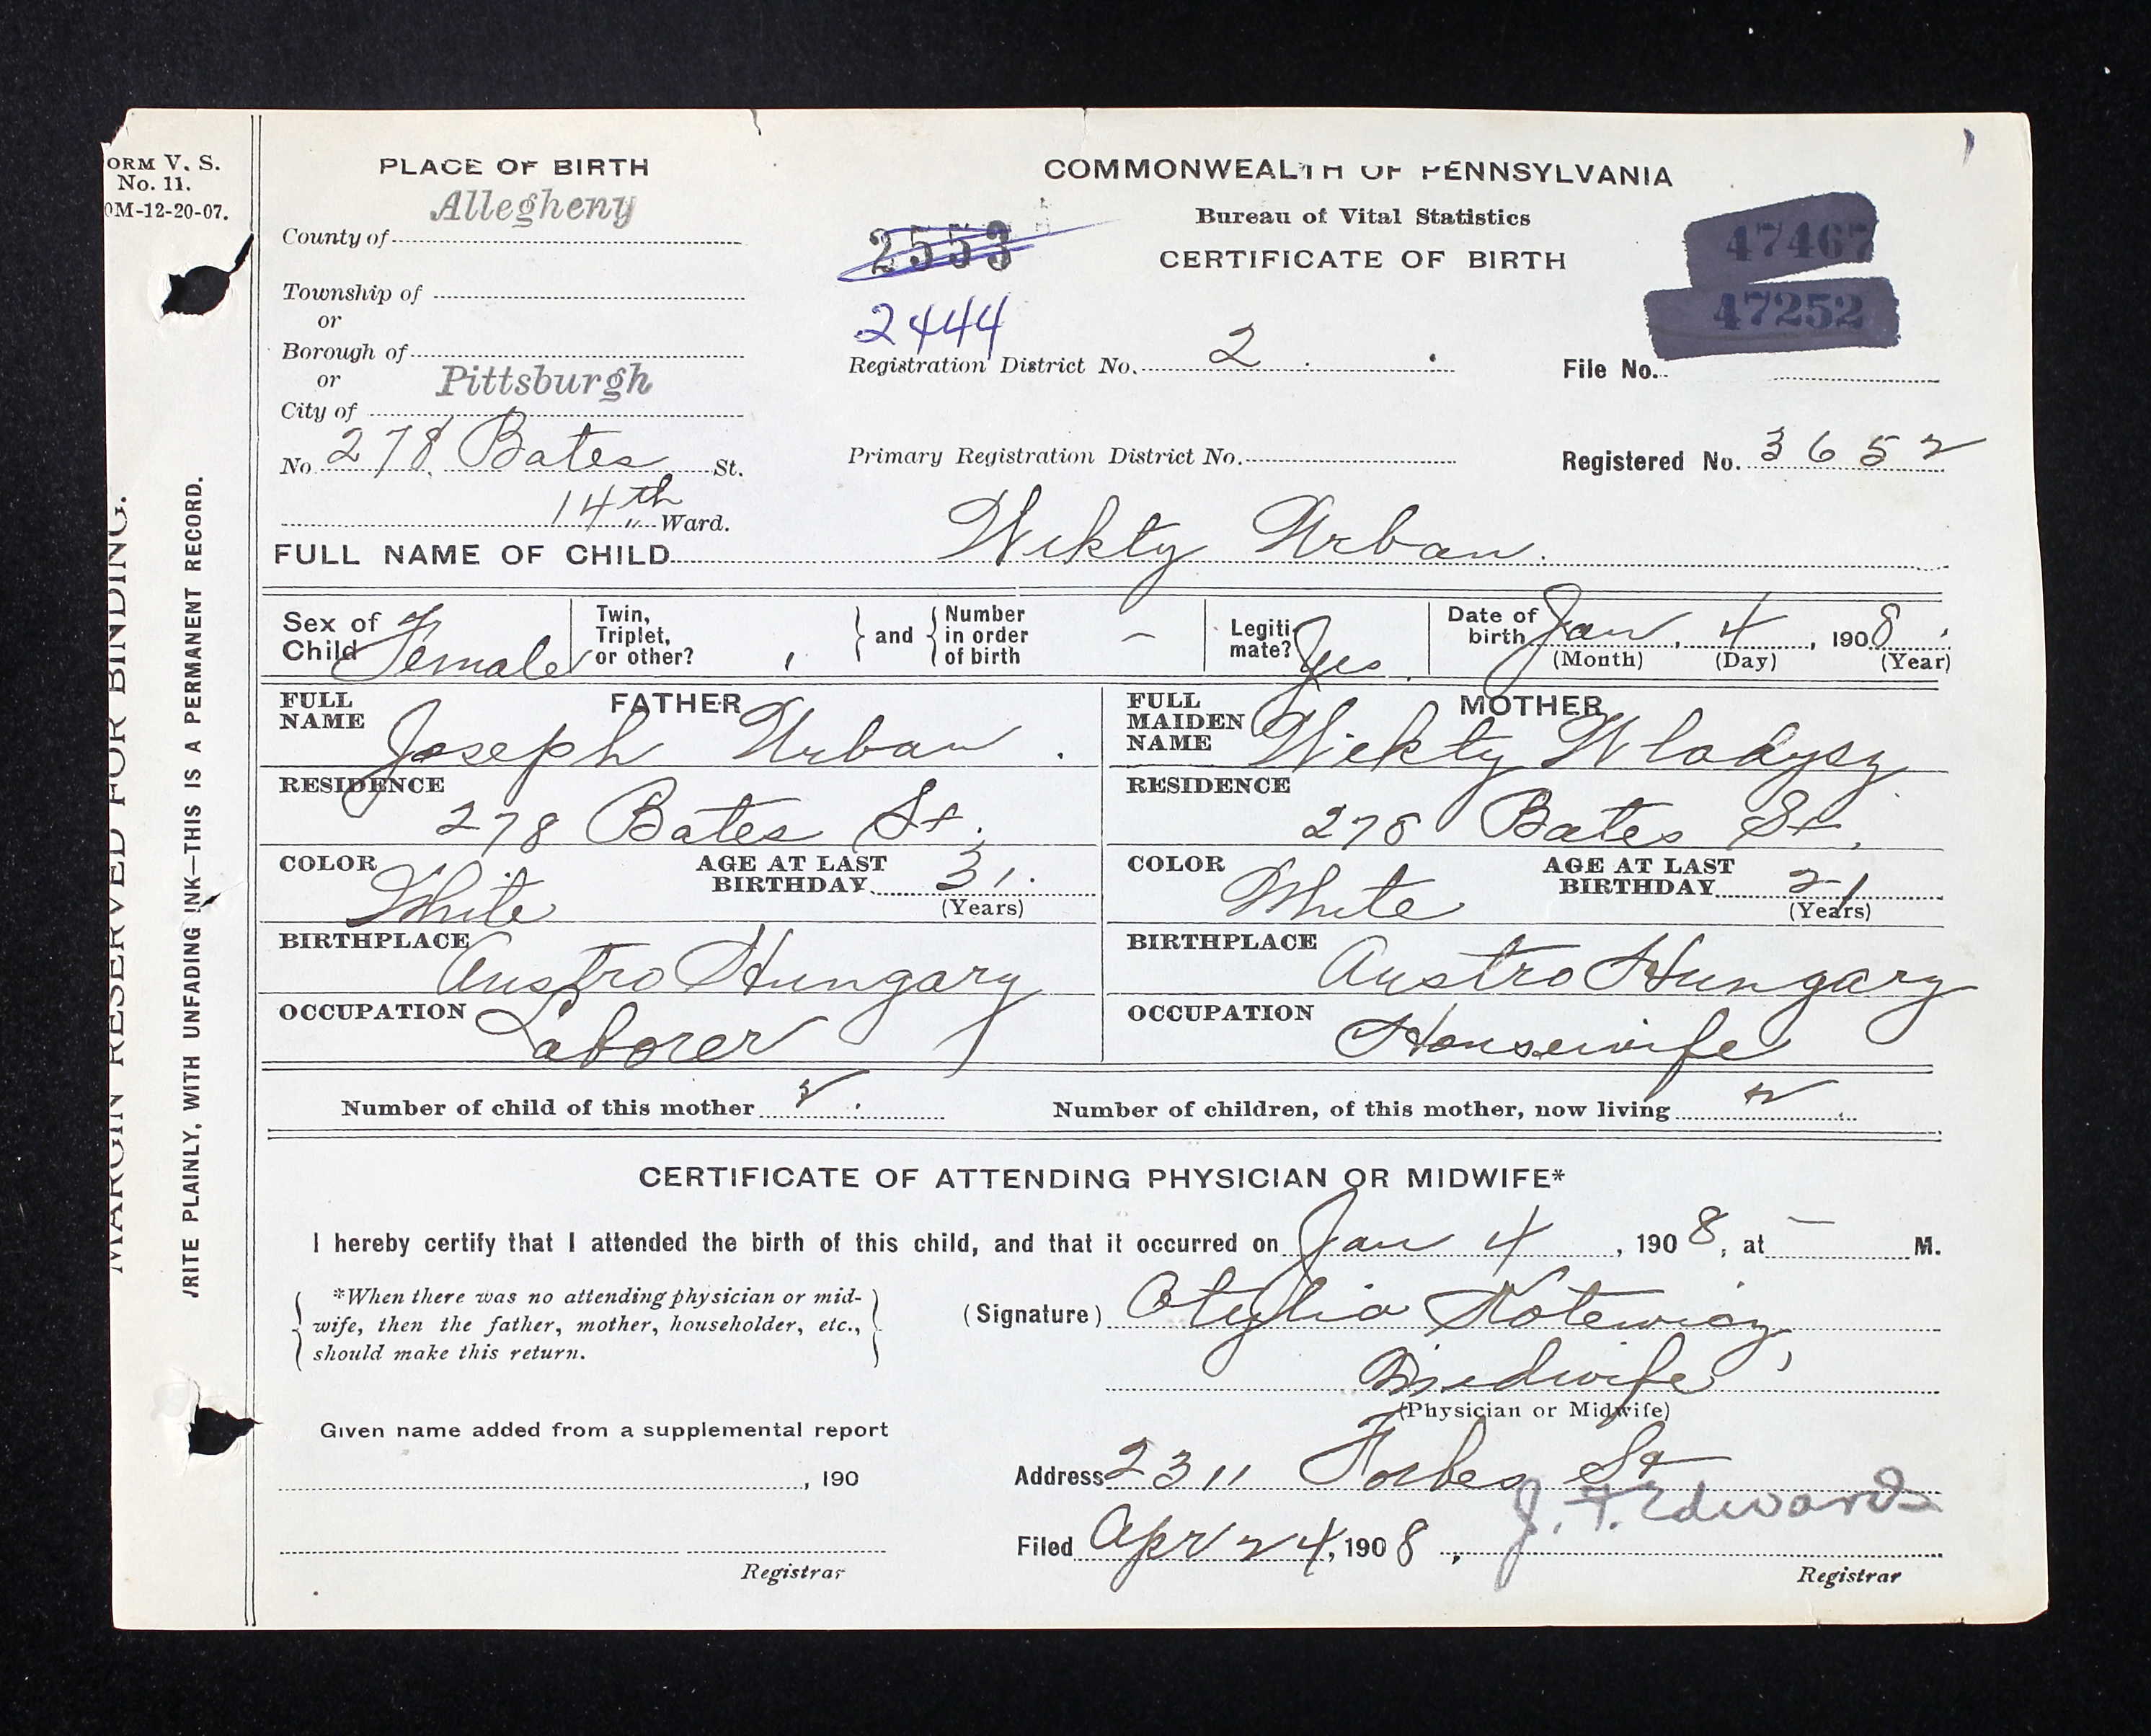 ORM V. S.
No. 11.
0M-12-20-07.
MARGIN RESERVED FOR BINDING.
WRITE PLAINLY, WITH UNFADING INK—THIS IS A PERMANENT RECORD.
PLACE OF BIRTH
Allegheny
County of
Township of
or
Borough of
or
Pittsburgh
City of
No. 278 Bates St.
14th Ward.
COMMONWEALTH OF PENNSYLVANIA
Bureau of Vital Statistics
CERTIFICATE OF BIRTH
2553
2444
47467
47252
Registration District No. 2
File No.
Primary Registration District No.
Registered No. 3652
FULL NAME OF CHILD Wikty Urban.
Sex of Child Female
Twin, Triplet, or other?
and
Number in order of birth –
Legitimate? Yes.
Date of birth Jan, 4, 1908
(Month) (Day) (Year)
FATHER
FULL NAME
Joseph Urban.
RESIDENCE
278 Bates St.
COLOR
White
AGE AT LAST BIRTHDAY 31.
(Years)
BIRTHPLACE
Austro Hungary
OCCUPATION
Laborer
MOTHER
FULL MAIDEN NAME
Wikty Wladysz
RESIDENCE
278 Bates St.
COLOR
White
AGE AT LAST BIRTHDAY 21
(Years)
BIRTHPLACE
Austro Hungary
OCCUPATION
Housewife
Number of child of this mother
Number of children, of this mother, now living
CERTIFICATE OF ATTENDING PHYSICIAN OR MIDWIFE*
I hereby certify that I attended the birth of this child, and that it occurred on Jan 4, 1908, at – M.
*When there was no attending physician or mid-
wife, then the father, mother, householder, etc.,
should make this return.
(Signature) Otylia Kotewicz,
Midwife
(Physician or Midwife)
Given name added from a supplemental report
, 190
Registrar
Address 2311 Forbes St
Filed Apr 24, 1908, J. F. Edwards
Registrar